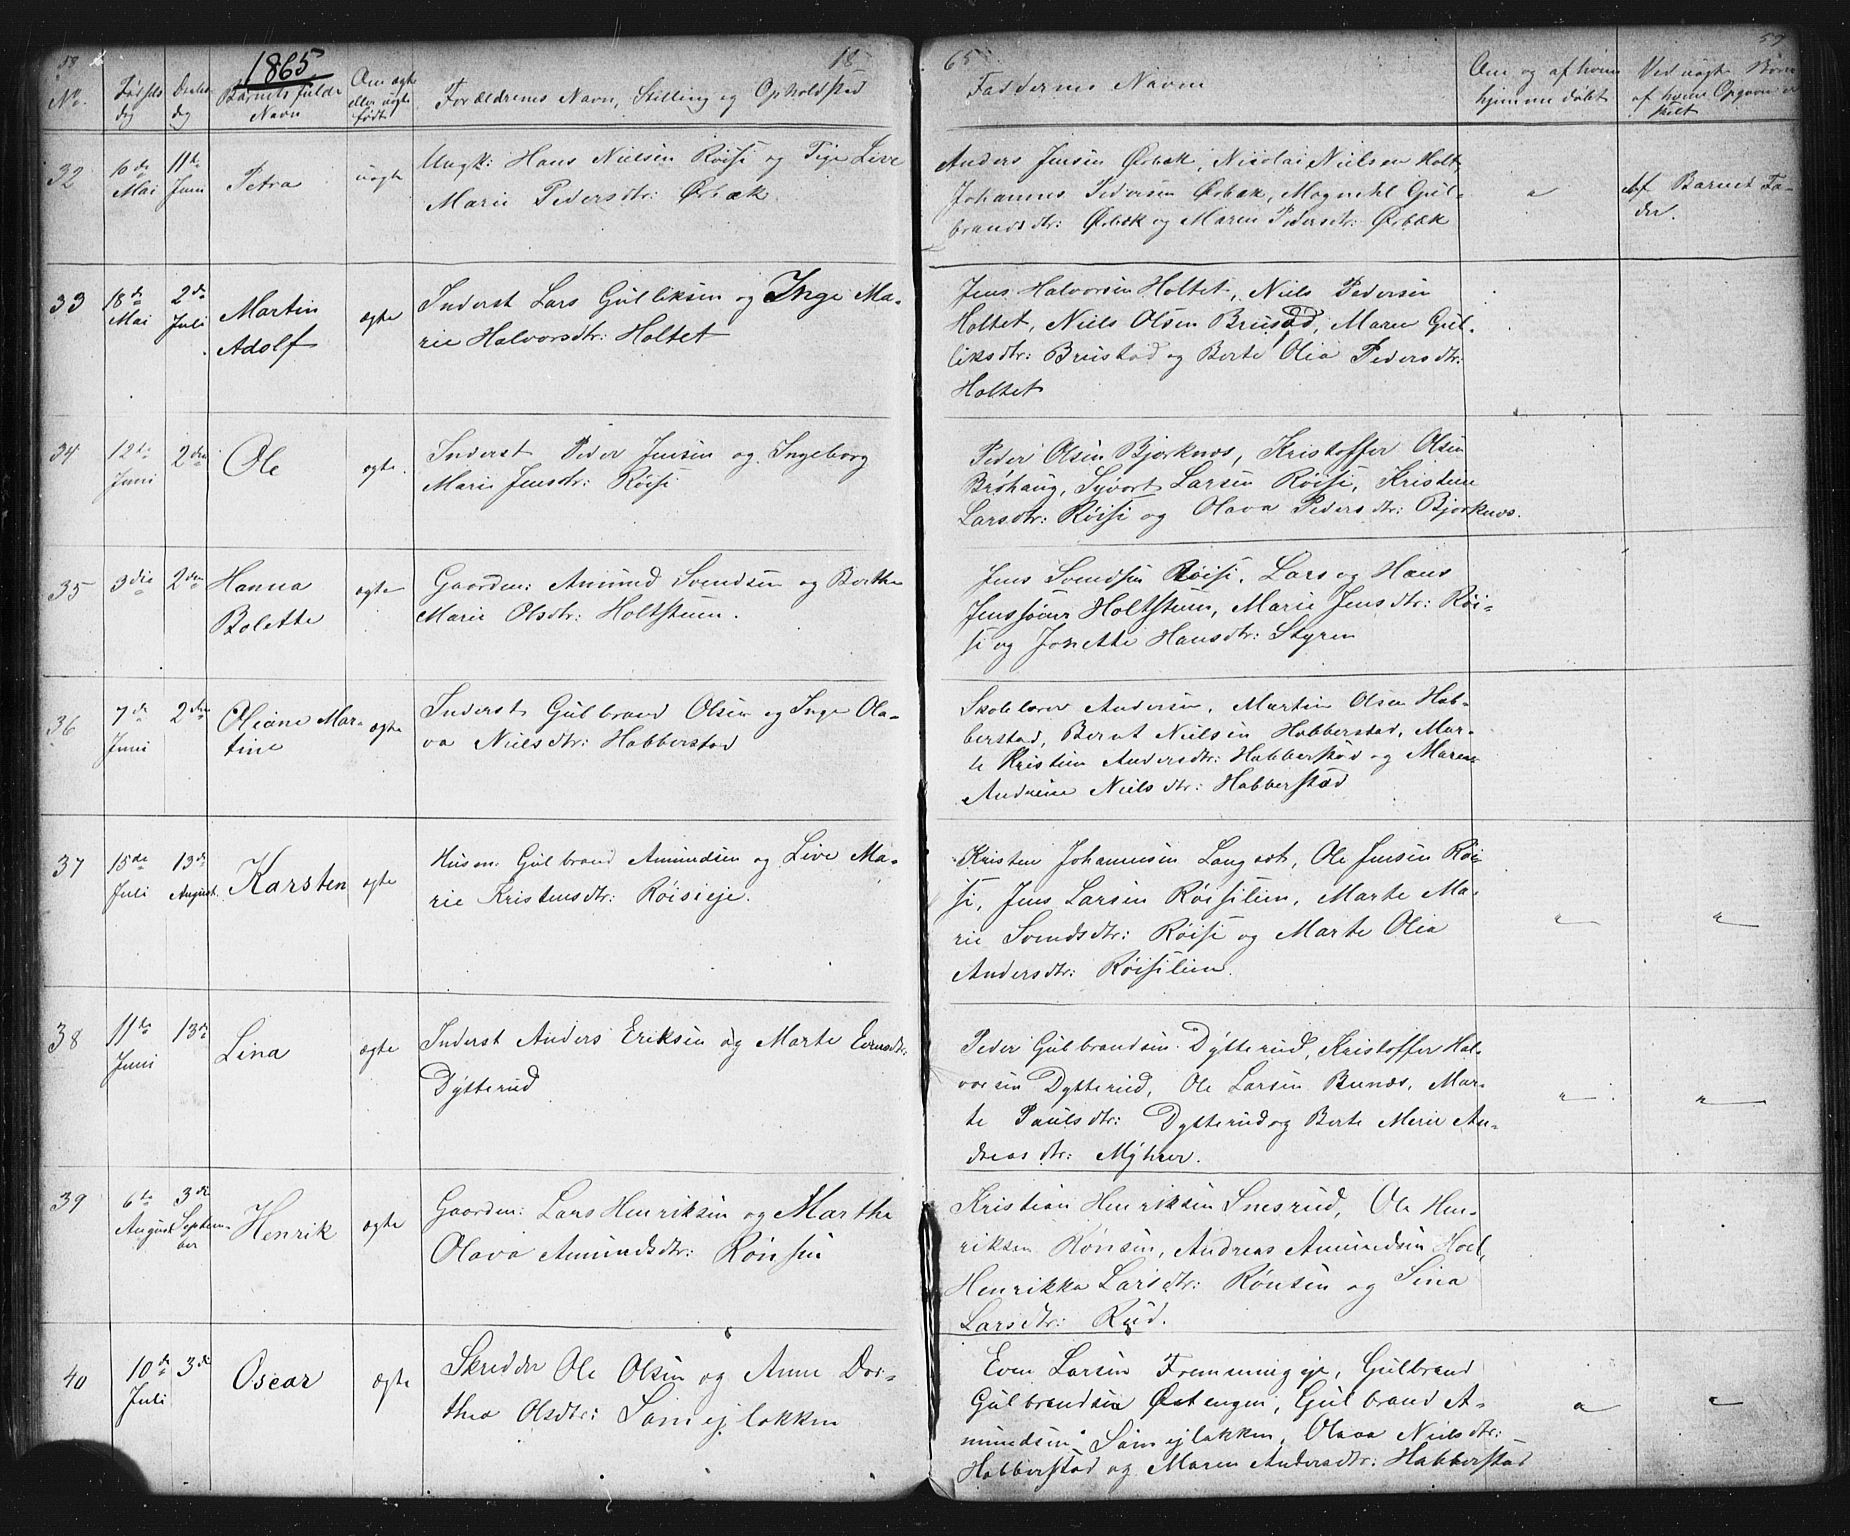 58
1865
18
65
59
No.
Fødsels
dag
Daabs
dag
Barnets fulde
Navn
Om ægte
eller uægte
født
Forældrenes Navn, Stilling og Opholdsted
Faddernes Navne
Om og af hvem
hjemme døbt
Ved uægte Børn
af hvem Opgaven er
skeet
32
10de
Mai
11te
Juni
Petra
uægte
Ungk: Hans Nielsen Røisi og Pige Live
Marie Pedersdtr: Ørbæk.
Anders Jensen Ørbæk, Nicolai Nielsen Holt,
Johannes Pedersen Ørbæk, Magnhil Gul-
brandsdtr: Ørbæk og Maren Pedersdtr: Ørbæk
"
Af Barnets Fa-
der.
33
18de
Mai
2den
Juli
Martin
Adolf
ægte
Inderst Lars Gulliksen og Inge Ma-
rie Halvorsdtr: Holtet
Jens Halvorsen Holtet, Niels Pedersen
Holtet, Niels Olsen Brustad, Maren Gul-
liksdtr: Brustad og Berte Olia Pedersdtr:
Holtet
34
12te
Juni
2den
Ole
ægte.
Inderst Peder Jensen og Ingeborg
Marie Jensdtr: Røisi
Peder Olsen Bjørknes, Kristoffer Olsen
Brøhaug, Syvert Larsen Røisi, Kristine
Larsdtr: Røisi og Olava Pedersdtr: Bjørknes.
35
3die
2den
Hanna
Bolette
ægte
Gaardm: Amund Svendsen og Berthe
Marie Olsdtr: Holtstuen.
Jens Svendsen Røisi, Lars og Hans
Jenssønner Holtstuen, Marie Jensdtr: Røi-
si og Jonette Hansdtr: Styren
36
7de
Juni
2den
Oliane Mar-
tine
ægte
Inderst Gulbrand Olsen og Inge Ola-
va Nielsdtr: Habberstad
Skolelærer Andersen, Martin Olsen Hab-
berstad, Bernt Nielsen Habberstad, Mar-
te Kristine Andersdtr: Habberstad og Maren
Andrine Nielsdtr: Habberstad
37
15de
Juli
13de
August.
Karsten
ægte
Husm: Gulbrand Amundsen og Live Ma-
rie Kristensdtr: Røisieje.
Kristen Johannesen Langset, Ole Jensen Røi-
si, Jens Larsen Røisilien, Marte Ma-
rie Svendsdtr: Røisi og Marte Olia
Andersdtr: Røisilien.
"
"
38
11te
Juni
13de
Lina
ægte
Inderst Anders Eriksen og Marte Evensdtr:
Dytterud
Peder Gulbrandsen Dytterud, Kristoffer Hal-
vorsen Dytterud, Ole Larsen Bunæs, Mar-
te Paulsdtr: Dytterud og Berte Marie An-
dreasdtr: Myhrer.
"
"
39
6te
August
3die
Septem-
ber
Henrik
ægte
Gaardm: Lars Henriksen og Marthe
Olava Amundsdtr: Rønsen
Kristian Henriksen Snesrud, Ole Hen-
riksen Rønsen, Andreas Amundsen Hoel,
Henrikka Larsdtr: Rønsen og Lina
Larsdtr: Rud.
40
10de
Juli
3die
Oscar
ægte
Skredder Ole Olsen og Anne Dor-
thea Olsdtr: Samejløkken
Even Larsen Fremmingeje, Gulbrand
Gulbrandsen Østengen, Gulbrand A-
mundsen Samejløkken, Olava Nielsdtr:
Habberstad og Maren Andersdtr: Habberstad
"
"